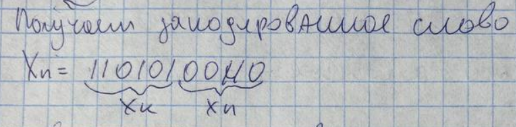 Получаем закодированное слово
Xn = 11010100110
Xk Xn